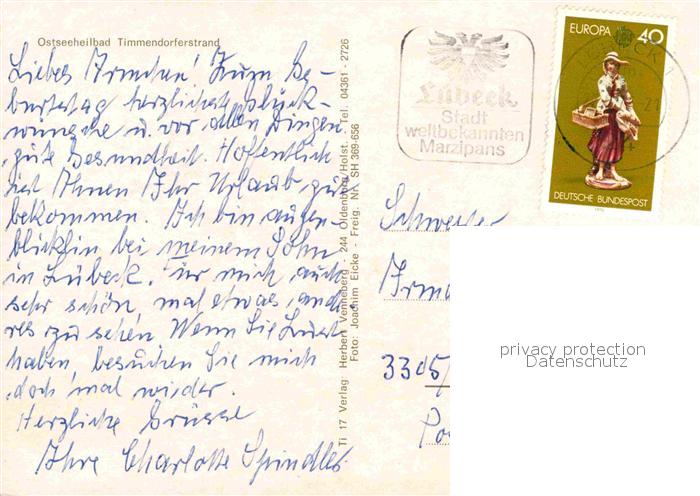 Ostseeheilbad Timmendorferstrand
Liebes Irmchen! Zum Ge-
burtstag herzlichste Glück-
wünsche u. vor allen Dingen
gute Gesundheit. Hoffentlich
ist Ihnen Ihr Urlaub gut
bekommen. Ich bin augen-
blicklin bei meinem Sohn
in Lübeck. Für mich auch
sehr schön, mal etwas ande-
res zu sehen. Wenn Sie Lust
haben, besuchen Sie mich
doch mal wieder.
Herzliche Grüsse
Ihre Charlotte Spindler
Ti 17 Verlag Herbert Venneberg - 244 Oldenburg/Holst. Tel. 04361 - 2726
Foto: Joachim Eicke - Freig. Nr. SH 369-656
Lübeck
Stadt
weltbekannten
Marzipans
EUROPA 40
DEUTSCHE BUNDESPOST
LÜBECK 1
21
Schwester
Irm
3305/
Po
privacy protection
Datenschutz